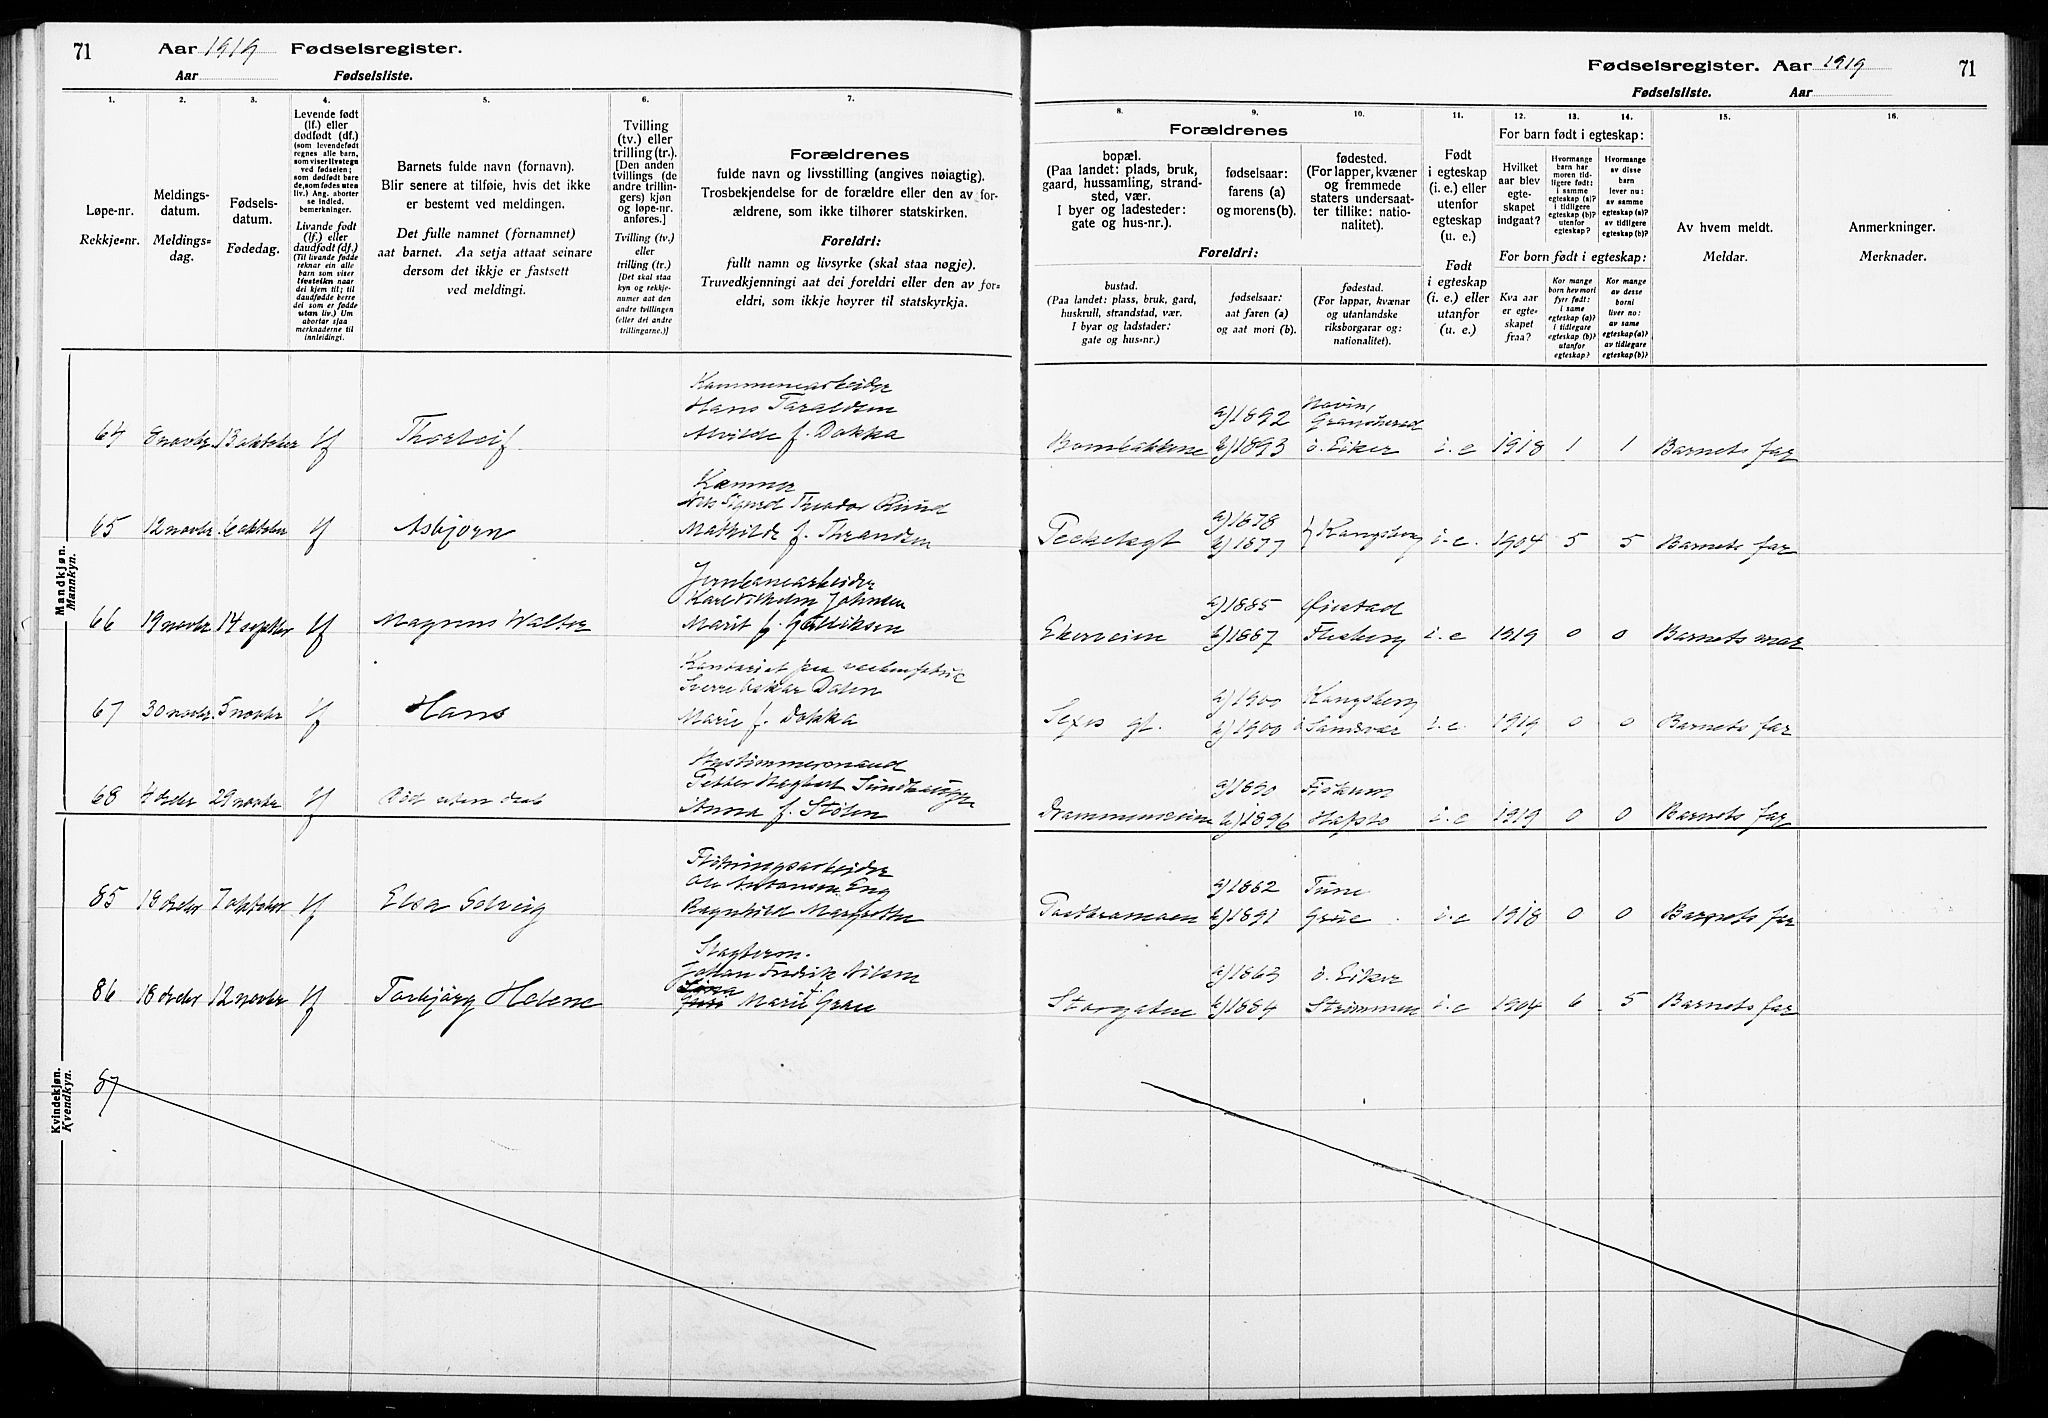 71
Aar 1919 Fødselsregister.
Aar Fødselsliste.
1.
2.
3.
4.
5.
6.
7.
Løpe-nr.
Rekkje=nr.
Meldings-
datum.
Meldings=
dag.
Fødsels-
datum.
Fødedag.
Levende født
(lf.) eller
dødfødt (df.)
(som levendefødt
regnes alle barn,
som viser livstegn
ved fødselen;
som dødfødt bare
de, som fødes uten
liv.) Ang. aborter
se indled.
bemerkninger.
Livande født
(lf.) eller
daudfødt (df.)
(Til livande fødde
reknar ein alle
barn som viser
lifsteikn naar
dei kjem til; til
daudfødde berre
dei som er fødde
utan liv.) Um
abortar sjaa
merknaderne til
innleidingi.
Barnets fulde navn (fornavn).
Blir senere at tilføie, hvis det ikke
er bestemt ved meldingen.
Det fulle namnet (fornamnet)
aat barnet. Aa setja attaat seinare
dersom det ikkje er fastsett
ved meldingi.
Tvilling
(tv.) eller
trilling (tr.).
[Den anden
tvillings (de
andre trillin-
gers) kjøn
og løpe-nr.
anføres.]
Tvilling (tv.)
eller
trilling (tr.)
[Det skal staa
kyn og rekkje-
numer aat den
andre tvillingen
(eller dei andre
trillingarne.)]
Forældrenes
fulde navn og livsstilling (angives nøiagtig).
Trosbekjendelse for de forældre eller den av for-
ældrene, som ikke tilhører statskirken.
Foreldri:
fullt namn og livsyrke (skal staa nøgje).
Truvedkjenningi aat dei foreldri eller den av for=
eldri, som ikkje høyrer til statskyrkja.
Mandkjøn.
Mannkyn.
64 8 novbr. 13 oktober lf Thorleif
Hans Taraldsen
Alvilde f. Dokka
65 12 novbr. 6 oktober lf Asbjørn
Kæmner
Nils Sigurd Theodor
Mathilde f. Thrandsen
66 19 novbr 14 septbr lf Magnus Walter
Jernbanearbeider
Karl Vilhelm Johnsen
Marit f.
67 30 novbr. 5 novbr lf Hans
Sverre Oskar Dalen
Marie f. Dokka
68 4 decbr 29 novbr lf Død uten daab
Anna f. Stølen
Kvindekjøn.
Kvendkyn.
85 18 decbr 7 oktober lf Elsa Solveig
Fløtningsarbeider
Ole Antonsen Eng
Ragnhild Margrethe
86 18 decbr 12 novbr lf Torbjørg Helene
Johan Fredrik Nilsen
Marit
87
Fødselsregister. Aar 1919 71
Fødselsliste. Aar
8.
9.
10.
11.
12.
13.
14.
15.
16.
Forældrenes
bopæl.
(Paa landet: plads, bruk,
gaard, hussamling, strand-
sted, vær.
I byer og ladesteder:
gate og hus-nr.).
fødselsaar:
farens (a)
og morens (b).
fødested.
(For lapper, kvæner
og fremmede
staters undersaat-
ter tillike: natio-
nalitet).
Foreldri:
bustad.
(Paa landet: plass, bruk, gard,
huskrull, strandstad, vær.
I byar og ladstader:
gate og hus=nr.)
fødselsaar:
aat faren (a)
og aat mori (b).
fødestad.
(For lappar, kvænar
og utanlandske
riksborgarar og:
nationalitet).
Født
i egteskap
(i. e.) eller
utenfor
egteskap
(u. e.)
Født
i egteskap
(i. e.) eller
utanfor
(u. e.)
For barn født i egteskap:
Hvilket
aar blev
egte-
skapet
indgaat?
Hvormange
barn har
moren tid-
ligere født:
i samme
egteskap (a)?
i tidligere
egteskap (b)?
utenfor
egteskap?
Hvormange
av disse
barn
lever nu:
av samme
egteskap (a)?
av tidligere
egteskap (b)?
For born født i egteskap:
Kva aar
er egte=
skapet
fraa?
Kor mange
born hev mori
fyrr født:
i same
egteskap (a)?
i tidlegare
egteskap (b)?
utanfor
egteskap?
Kor mange
av desse
borni
liver no:
av same
egteskap (a)?
av tidlegare
egteskap (b)?
Av hvem meldt.
Meldar.
Anmerkninger.
Merknader.
a) 1892
b) 1893 ø. Eiker i. e 1918 1 1 Barnets far
a) 1878
b) 1877 } Kongsberg i. e. 1904 5 5 Barnets far
a) 1885
b) 1887 Flesberg i. e 1919 0 0 Barnets mor
a) 1900 Kongsberg
b) 1900 Sandsvær i. e. 1919 0 0 Barnets far
a) 1890 Fiskum
Drammensveien b) 1896 Hafslo i. e 1919 0 0 Barnets far
a) 1882 Tune
b) 1891 Grue i. e 1918 0 0 Barnets far
a) 1863 ø. Eiker
Storgaten b) 1884 Strømmen i. e 1904 6 5 Barnets far